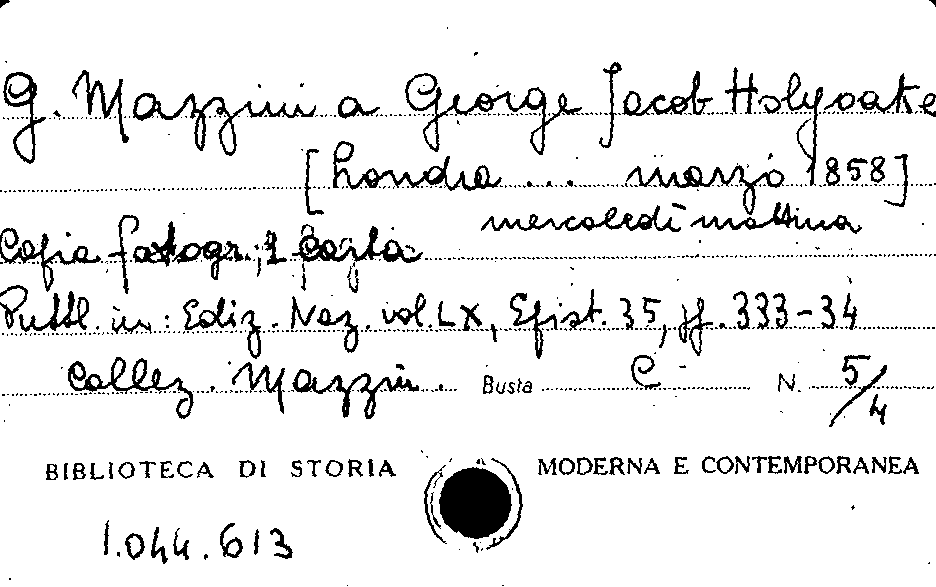 G. Mazzini a George Jacob Holyoake
[Londra ... marzo 1858]
mercoledì mattina
Copia fotogr., 1 carta
Pubbl. in: Ediz. Naz. vol. LX, Epist. 35, pp. 333-34
Collez. Mazzini. Busta C N. 5/4
BIBLIOTECA DI STORIA MODERNA E CONTEMPORANEA
1.044.613